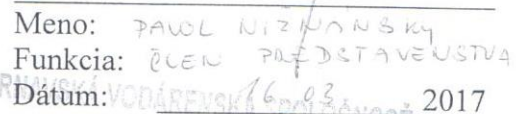 Meno: PAVOL NIŽNANSKY
Funkcia: ČLEN PREDSTAVENSTVA
Dátum: 16.03 2017
VODÁRENSKÁ SPOLOČNOSŤ